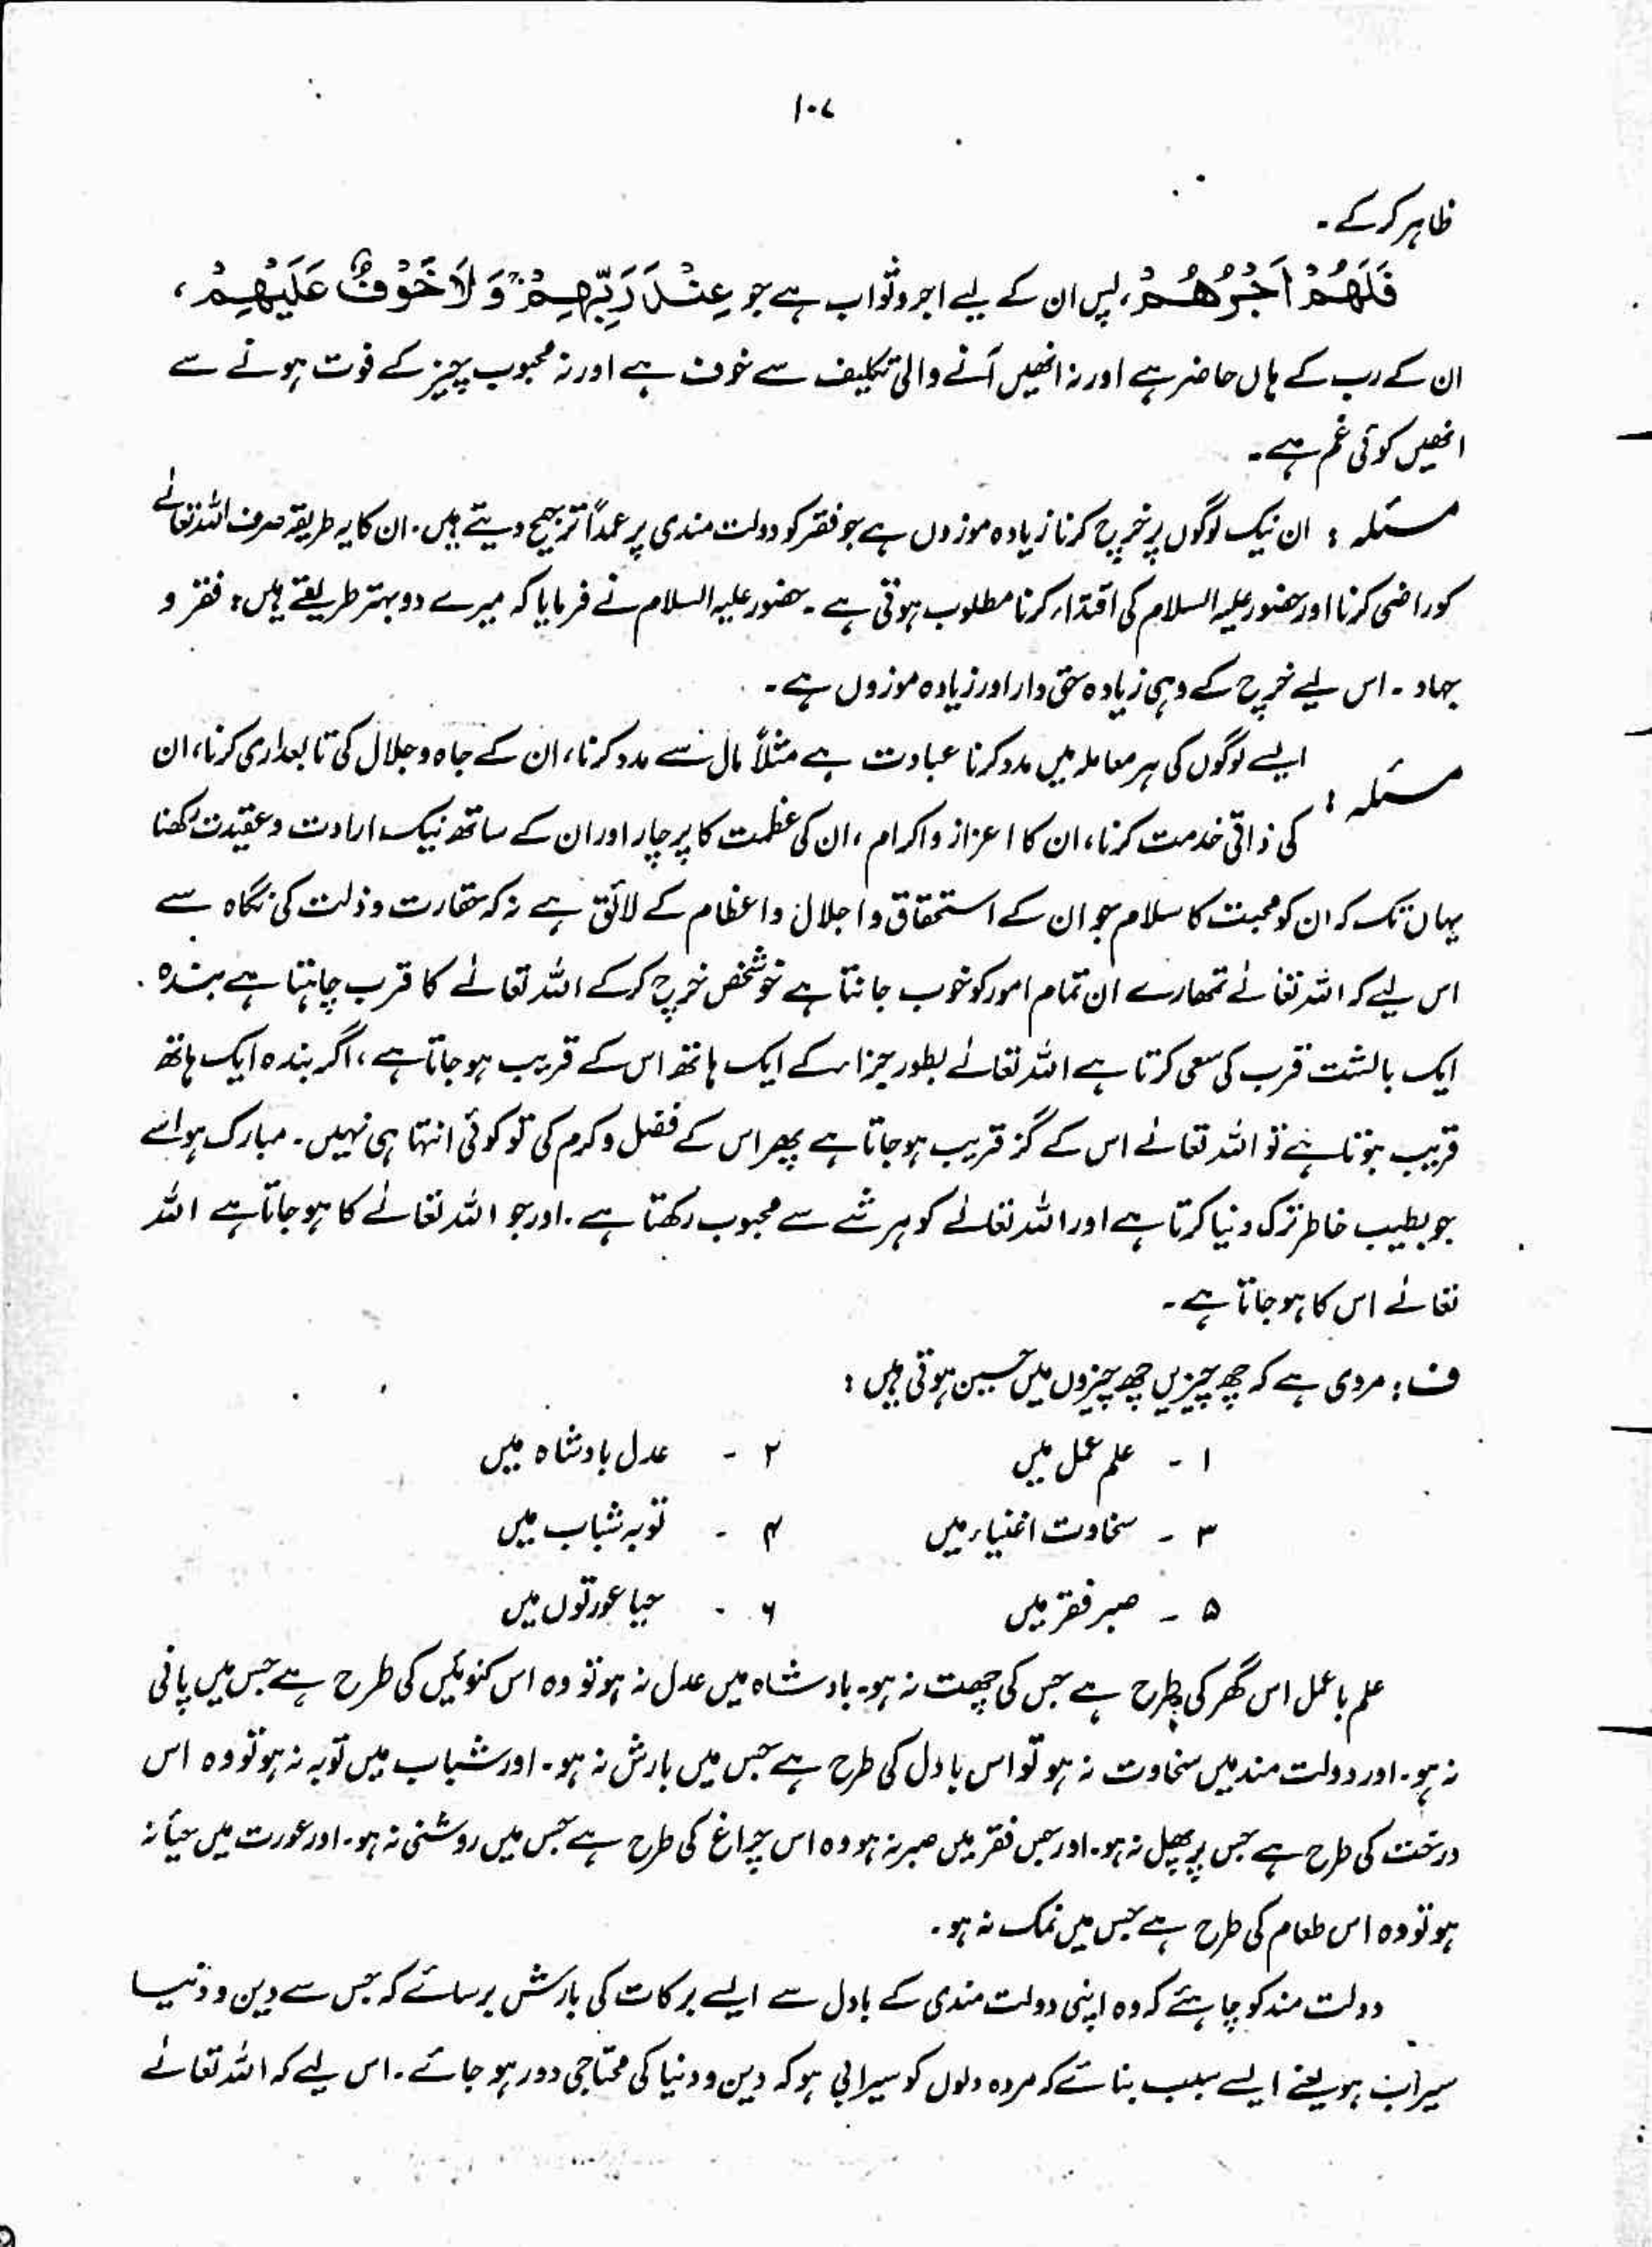 ۱۰۷
ظاہر کر کے۔
فَلَهُمْ اَجْرُهُمْ، پس ان کے لیے اجر و ثواب ہے جو عِنْدَ رَبِّهِمْ وَلَا خَوْفٌ عَلَيْهِمْ،
ان کے رب کے ہاں حاضر ہے اور نہ انھیں آنے والی تکلیف سے خوف ہے اور نہ محبوب چیز کے فوت ہونے سے
انھیں کوئی غم ہے۔
مسئلہ : ان نیک لوگوں پر خرچ کرنا زیادہ موزوں ہے جو فقر کو دولت مندی پر عمداً ترجیح دیتے ہیں۔ ان کا یہ طریقہ صرف اللہ تعالےٰ
کو راضی کرنا اور حضور علیہ السلام کی اقتداء کرنا مطلوب ہوتی ہے۔ حضور علیہ السلام نے فرمایا کہ میرے دو بہتر طریقے ہیں: فقر و
جہاد۔ اس لیے خرچ کے وہی زیادہ حق دار اور زیادہ موزوں ہے۔
مسئلہ : ایسے لوگوں کی ہر معاملہ میں مدد کرنا عبادت ہے مثلاً مال سے مدد کرنا، ان کے جاہ و جلال کی تابعداری کرنا، ان
کی ذاتی خدمت کرنا، ان کا اعزاز و اکرام، ان کی عظمت کا پرچار اور ان کے ساتھ نیک ارادت و عقیدت رکھنا
یہاں تک کہ ان کو محبت کا سلام جو ان کے استحقاق و اجلال و اعظام کے لائق ہے نہ کہ حقارت و ذلت کی نگاہ سے
اس لیے کہ اللہ تعالےٰ تمھارے ان تمام امور کو خوب جانتا ہے جو شخص خرچ کر کے اللہ تعالےٰ کا قرب چاہتا ہے بندہ
ایک بالشت قرب کی سعی کرتا ہے اللہ تعالےٰ بطور جزاء کے ایک ہاتھ اس کے قریب ہو جاتا ہے، اگر بندہ ایک ہاتھ
قریب ہوتا ہے تو اللہ تعالےٰ اس کے گز قریب ہو جاتا ہے پھر اس کے فضل و کرم کی تو کوئی انتہا ہی نہیں۔ مبارک ہو اسے
جو بطیب خاطر ترک دنیا کرتا ہے اور اللہ تعالےٰ کو ہر شے سے محبوب رکھتا ہے۔ اور جو اللہ تعالےٰ کا ہو جاتا ہے اللہ
تعالےٰ اس کا ہو جاتا ہے۔
ف : مروی ہے کہ چھ چیزیں چھ چیزوں میں حسین ہوتی ہیں :
۱ - علم عمل میں ۲ - عدل بادشاہ میں
۳ - سخاوت اغنیاء میں ۴ - توبہ شباب میں
۵ - صبر فقر میں ۶ - حیا عورتوں میں
علم باعمل اس گھر کی طرح ہے جس کی چھت نہ ہو۔ بادشاہ میں عدل نہ ہو تو وہ اس کنوئیں کی طرح ہے جس میں پانی
نہ ہو۔ اور دولت مند میں سخاوت نہ ہو تو اس بادل کی طرح ہے جس میں بارش نہ ہو۔ اور شباب میں توبہ نہ ہو تو وہ اس
درخت کی طرح ہے جس پر پھل نہ ہو۔ اور جس فقر میں صبر نہ ہو وہ اس چراغ کی طرح ہے جس میں روشنی نہ ہو۔ اور عورت میں حیا نہ
ہو تو وہ اس طعام کی طرح ہے جس میں نمک نہ ہو۔
دولت مند کو چاہئے کہ وہ اپنی دولت مندی کے بادل سے ایسے برکات کی بارش برسائے کہ جس سے دین و دنیا
سیراب ہو یعنے ایسے سبب بنائے کہ مردہ دلوں کو سیرابی ہو کہ دین و دنیا کی محتاجی دور ہو جائے۔ اس لیے کہ اللہ تعالےٰ